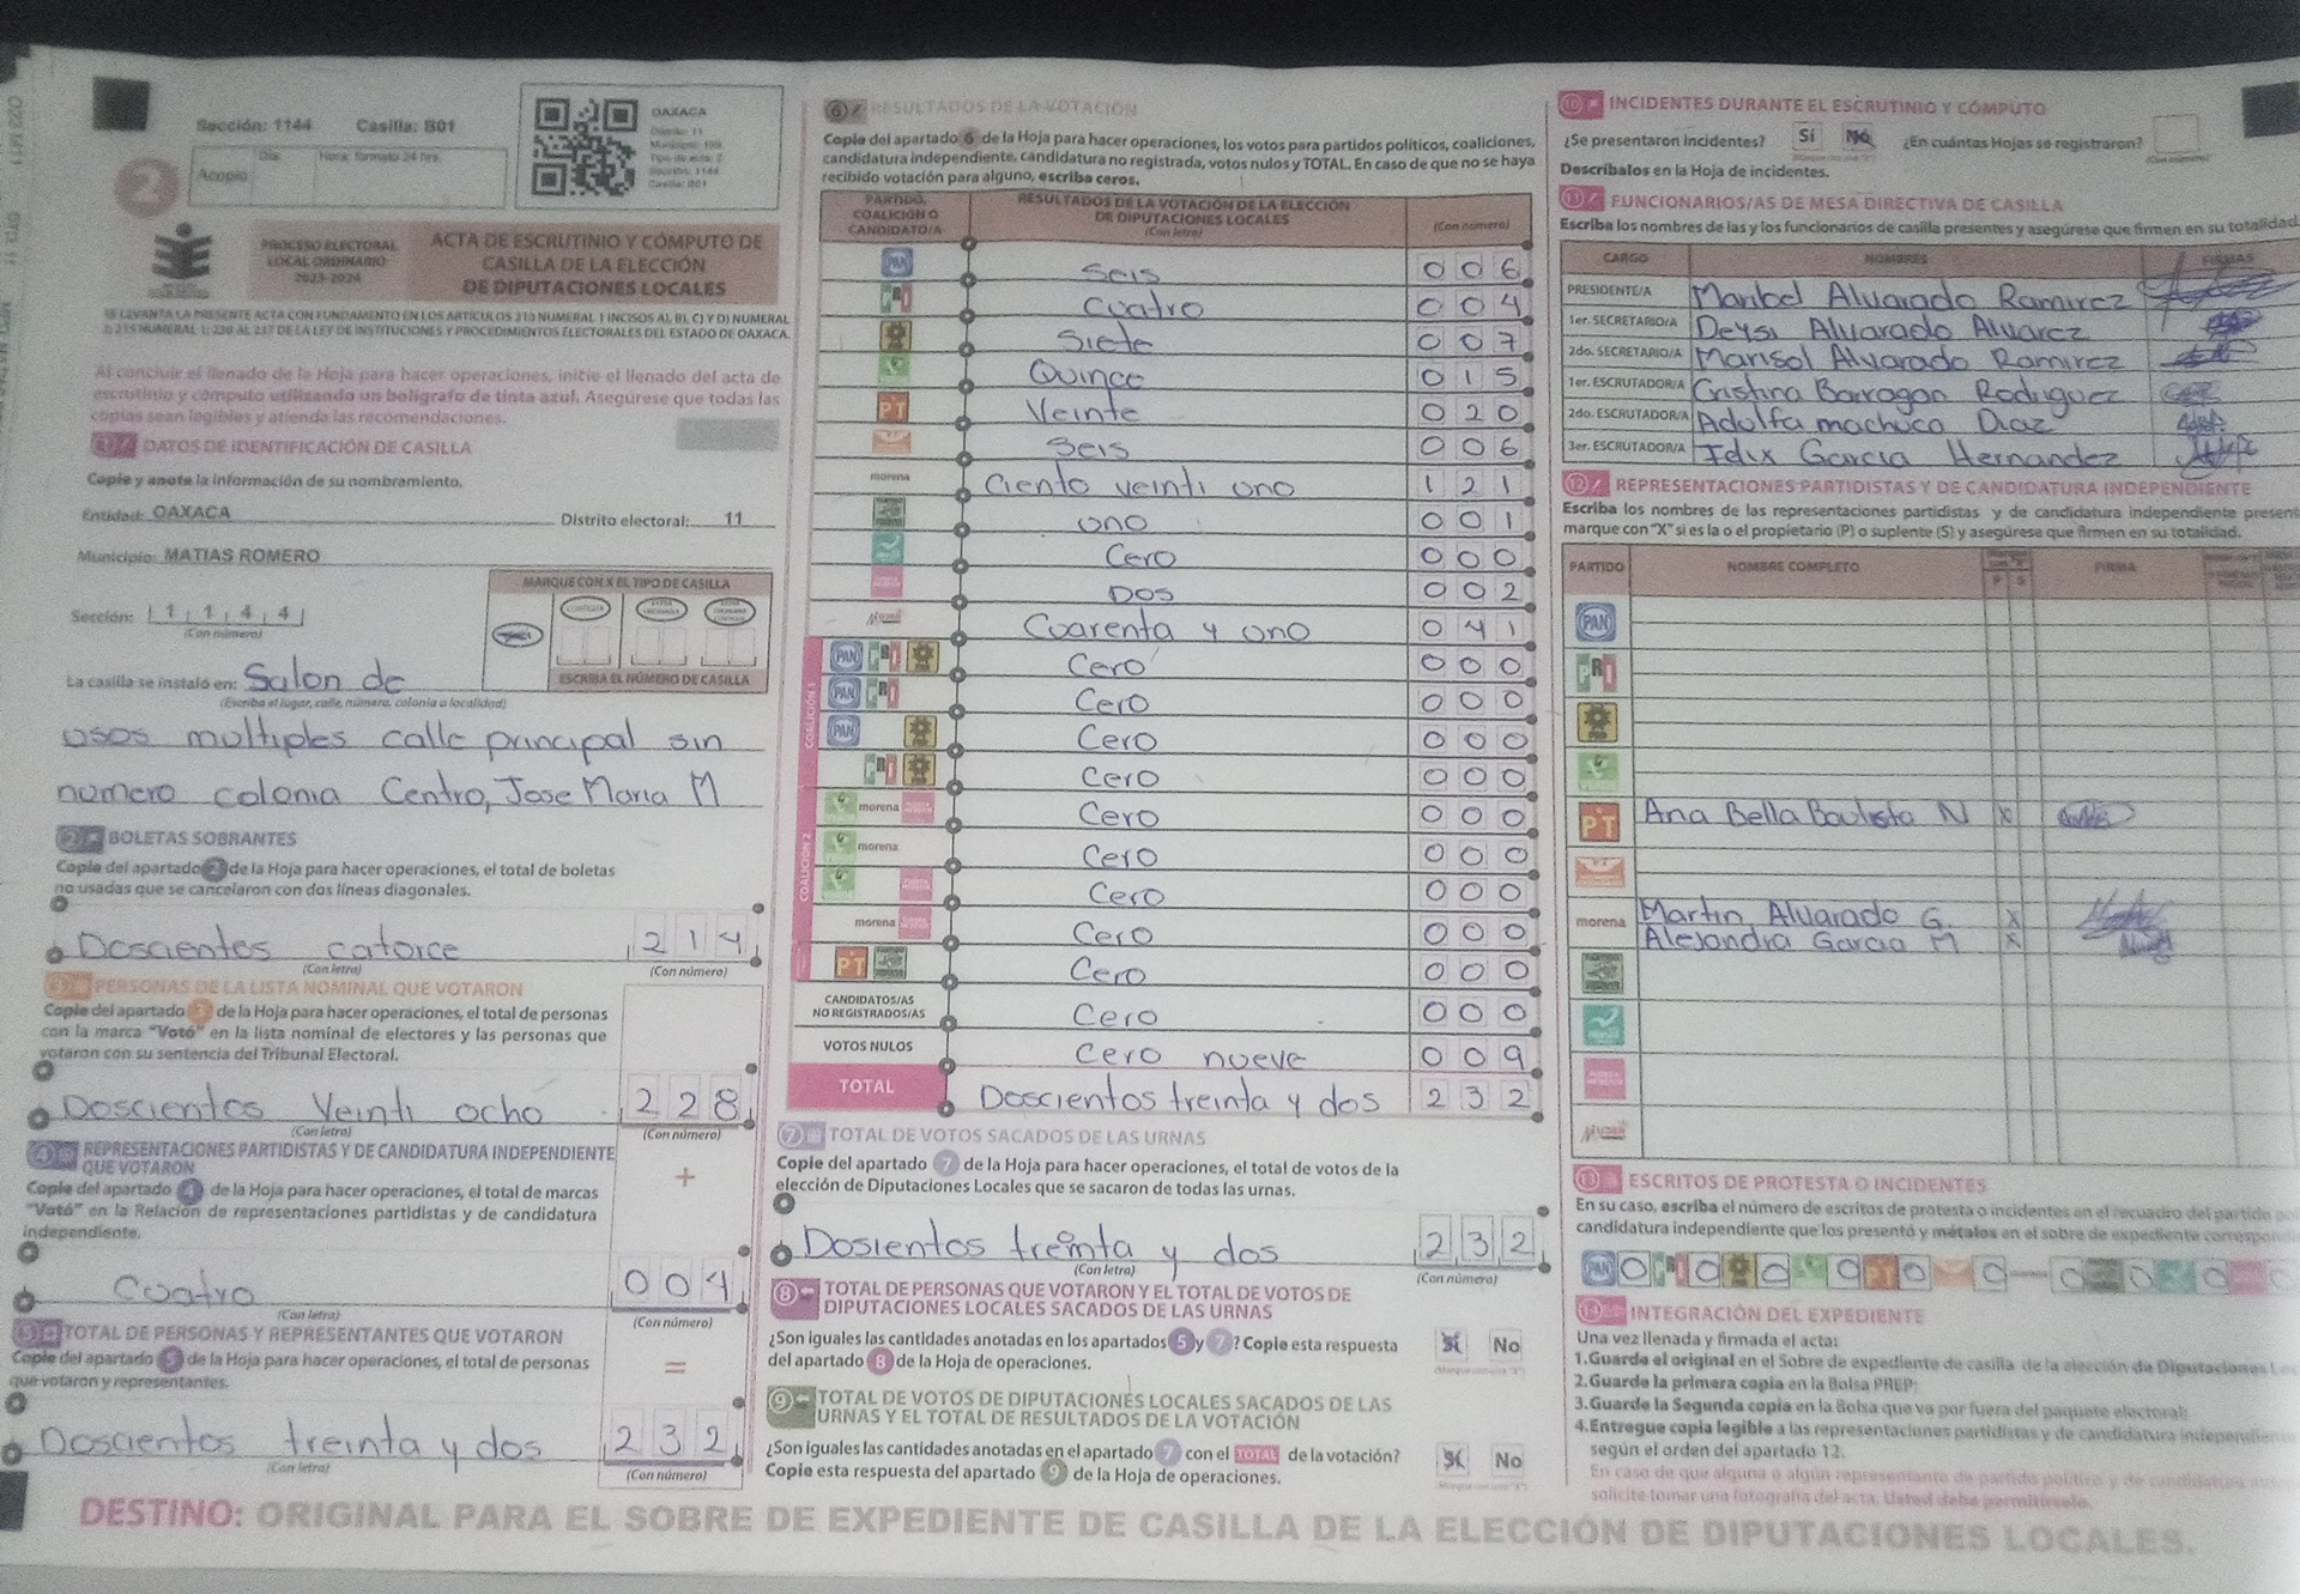 Sección: 1144 Casilla: B01
OAXACA
Acopio
2
PROCESO ELECTORAL
LOCAL ORDINARIO
2023-2024
ACTA DE ESCRUTINIO Y CÓMPUTO DE
CASILLA DE LA ELECCIÓN
DE DIPUTACIONES LOCALES
Al concluir el llenado de la Hoja para hacer operaciones, inicie el llenado del acta de
escrutinio y cómputo utilizando un bolígrafo de tinta azul. Asegúrese que todas las
copias sean legibles y atienda las recomendaciones.
1 DATOS DE IDENTIFICACIÓN DE CASILLA
Copie y anote la información de su nombramiento.
Entidad: OAXACA Distrito electoral: 11
Municipio: MATIAS ROMERO
MARQUE CON X EL TIPO DE CASILLA
Sección: 1 1 4 4
(Con número)
ESCRIBA EL NÚMERO DE CASILLA
La casilla se instaló en: Salon de
(Escriba el lugar, calle, número, colonia o localidad)
usos multiples calle principal sin
numero colonia Centro, Jose Maria M
2 BOLETAS SOBRANTES
Copie del apartado 2 de la Hoja para hacer operaciones, el total de boletas
no usadas que se cancelaron con dos líneas diagonales.
Doscientos catorce 214
(Con letra) (Con número)
3 PERSONAS DE LA LISTA NOMINAL QUE VOTARON
Copie del apartado 3 de la Hoja para hacer operaciones, el total de personas
con la marca "Votó" en la lista nominal de electores y las personas que
votaron con su sentencia del Tribunal Electoral.
Doscientos Veinti ocho 228
(Con letra) (Con número)
4 REPRESENTACIONES PARTIDISTAS Y DE CANDIDATURA INDEPENDIENTE
QUE VOTARON
Copie del apartado 4 de la Hoja para hacer operaciones, el total de marcas
"Votó" en la Relación de representaciones partidistas y de candidatura
independiente.
+
Cuatro 004
(Con letra) (Con número)
5 TOTAL DE PERSONAS Y REPRESENTANTES QUE VOTARON
Copie del apartado 5 de la Hoja para hacer operaciones, el total de personas
que votaron y representantes.
=
Doscientos treinta y dos 232
(Con letra) (Con número)
6 RESULTADOS DE LA VOTACIÓN
Copie del apartado 6 de la Hoja para hacer operaciones, los votos para partidos políticos, coaliciones,
candidatura independiente, candidatura no registrada, votos nulos y TOTAL. En caso de que no se haya
recibido votación para alguno, escriba ceros.
PARTIDO,
COALICIÓN O
CANDIDATO/A
RESULTADOS DE LA VOTACIÓN DE LA ELECCIÓN
DE DIPUTACIONES LOCALES
(Con letra) (Con número)
PAN Seis 006
PRI Cuatro 004
Siete 007
Quince 015
PT Veinte 020
Seis 006
morena Ciento veinti uno 121
uno 001
Cero 000
Dos 002
Cuarenta y uno 041
COALICIÓN 1
PAN PRI Cero 000
PAN PRI Cero 000
PAN Cero 000
PRI Cero 000
COALICIÓN 2
morena Cero 000
morena Cero 000
Cero 000
morena Cero 000
PT Cero 000
CANDIDATOS/AS
NO REGISTRADOS/AS Cero 000
VOTOS NULOS Cero nueve 009
TOTAL Doscientos treinta y dos 232
7 TOTAL DE VOTOS SACADOS DE LAS URNAS
Copie del apartado 7 de la Hoja para hacer operaciones, el total de votos de la
elección de Diputaciones Locales que se sacaron de todas las urnas.
Dosientos treinta y dos 232
(Con letra) (Con número)
8 TOTAL DE PERSONAS QUE VOTARON Y EL TOTAL DE VOTOS DE
DIPUTACIONES LOCALES SACADOS DE LAS URNAS
¿Son iguales las cantidades anotadas en los apartados 5 y 7? Copie esta respuesta
del apartado 8 de la Hoja de operaciones.
Sí No
9 TOTAL DE VOTOS DE DIPUTACIONES LOCALES SACADOS DE LAS
URNAS Y EL TOTAL DE RESULTADOS DE LA VOTACIÓN
¿Son iguales las cantidades anotadas en el apartado 7 con el TOTAL de la votación?
Copie esta respuesta del apartado 9 de la Hoja de operaciones.
Sí No
10 INCIDENTES DURANTE EL ESCRUTINIO Y CÓMPUTO
¿Se presentaron incidentes? Sí No ¿En cuántas Hojas se registraron?
Descríbalos en la Hoja de incidentes.
11 FUNCIONARIOS/AS DE MESA DIRECTIVA DE CASILLA
Escriba los nombres de las y los funcionarios de casilla presentes y asegúrese que firmen en su totalidad
CARGO NOMBRES FIRMAS
PRESIDENTE/A Maribel Alvarado Ramirez
1er. SECRETARIO/A Deysi Alvarado Alvarez
2do. SECRETARIO/A Marisol Alvarado Ramirez
1er. ESCRUTADOR/A Cristina Barragan Rodriguez
2do. ESCRUTADOR/A Adulfa machuca Diaz
3er. ESCRUTADOR/A Felix Garcia Hernandez
12 REPRESENTACIONES PARTIDISTAS Y DE CANDIDATURA INDEPENDIENTE
Escriba los nombres de las representaciones partidistas y de candidatura independiente present
marque con "X" si es la o el propietario (P) o suplente (S) y asegúrese que firmen en su totalidad.
PARTIDO NOMBRE COMPLETO P S FIRMA
PAN
PRI
PT Ana Bella Bautista N X
morena Martin Alvarado G. X
Alejandra Garcia M X
13 ESCRITOS DE PROTESTA O INCIDENTES
En su caso, escriba el número de escritos de protesta o incidentes en el recuadro del partido
candidatura independiente que los presentó y métalos en el sobre de expediente
PAN 0 PRI 0 0 0 PT 0 0 morena 0 0 0 0
14 INTEGRACIÓN DEL EXPEDIENTE
Una vez llenada y firmada el acta:
1. Guarde el original en el Sobre de expediente de casilla de la elección de Diputaciones
2. Guarde la primera copia en la Bolsa PREP;
3. Guarde la Segunda copia en la Bolsa que va por fuera del paquete electoral;
4. Entregue copia legible a las representaciones partidistas y de candidatura
según el orden del apartado 12.
En caso de que alguna o algún representante de partido político y de candidatura
solicite tomar una fotografía del acta, Usted debe permitírselo.
DESTINO: ORIGINAL PARA EL SOBRE DE EXPEDIENTE DE CASILLA DE LA ELECCIÓN DE DIPUTACIONES LOCALES.